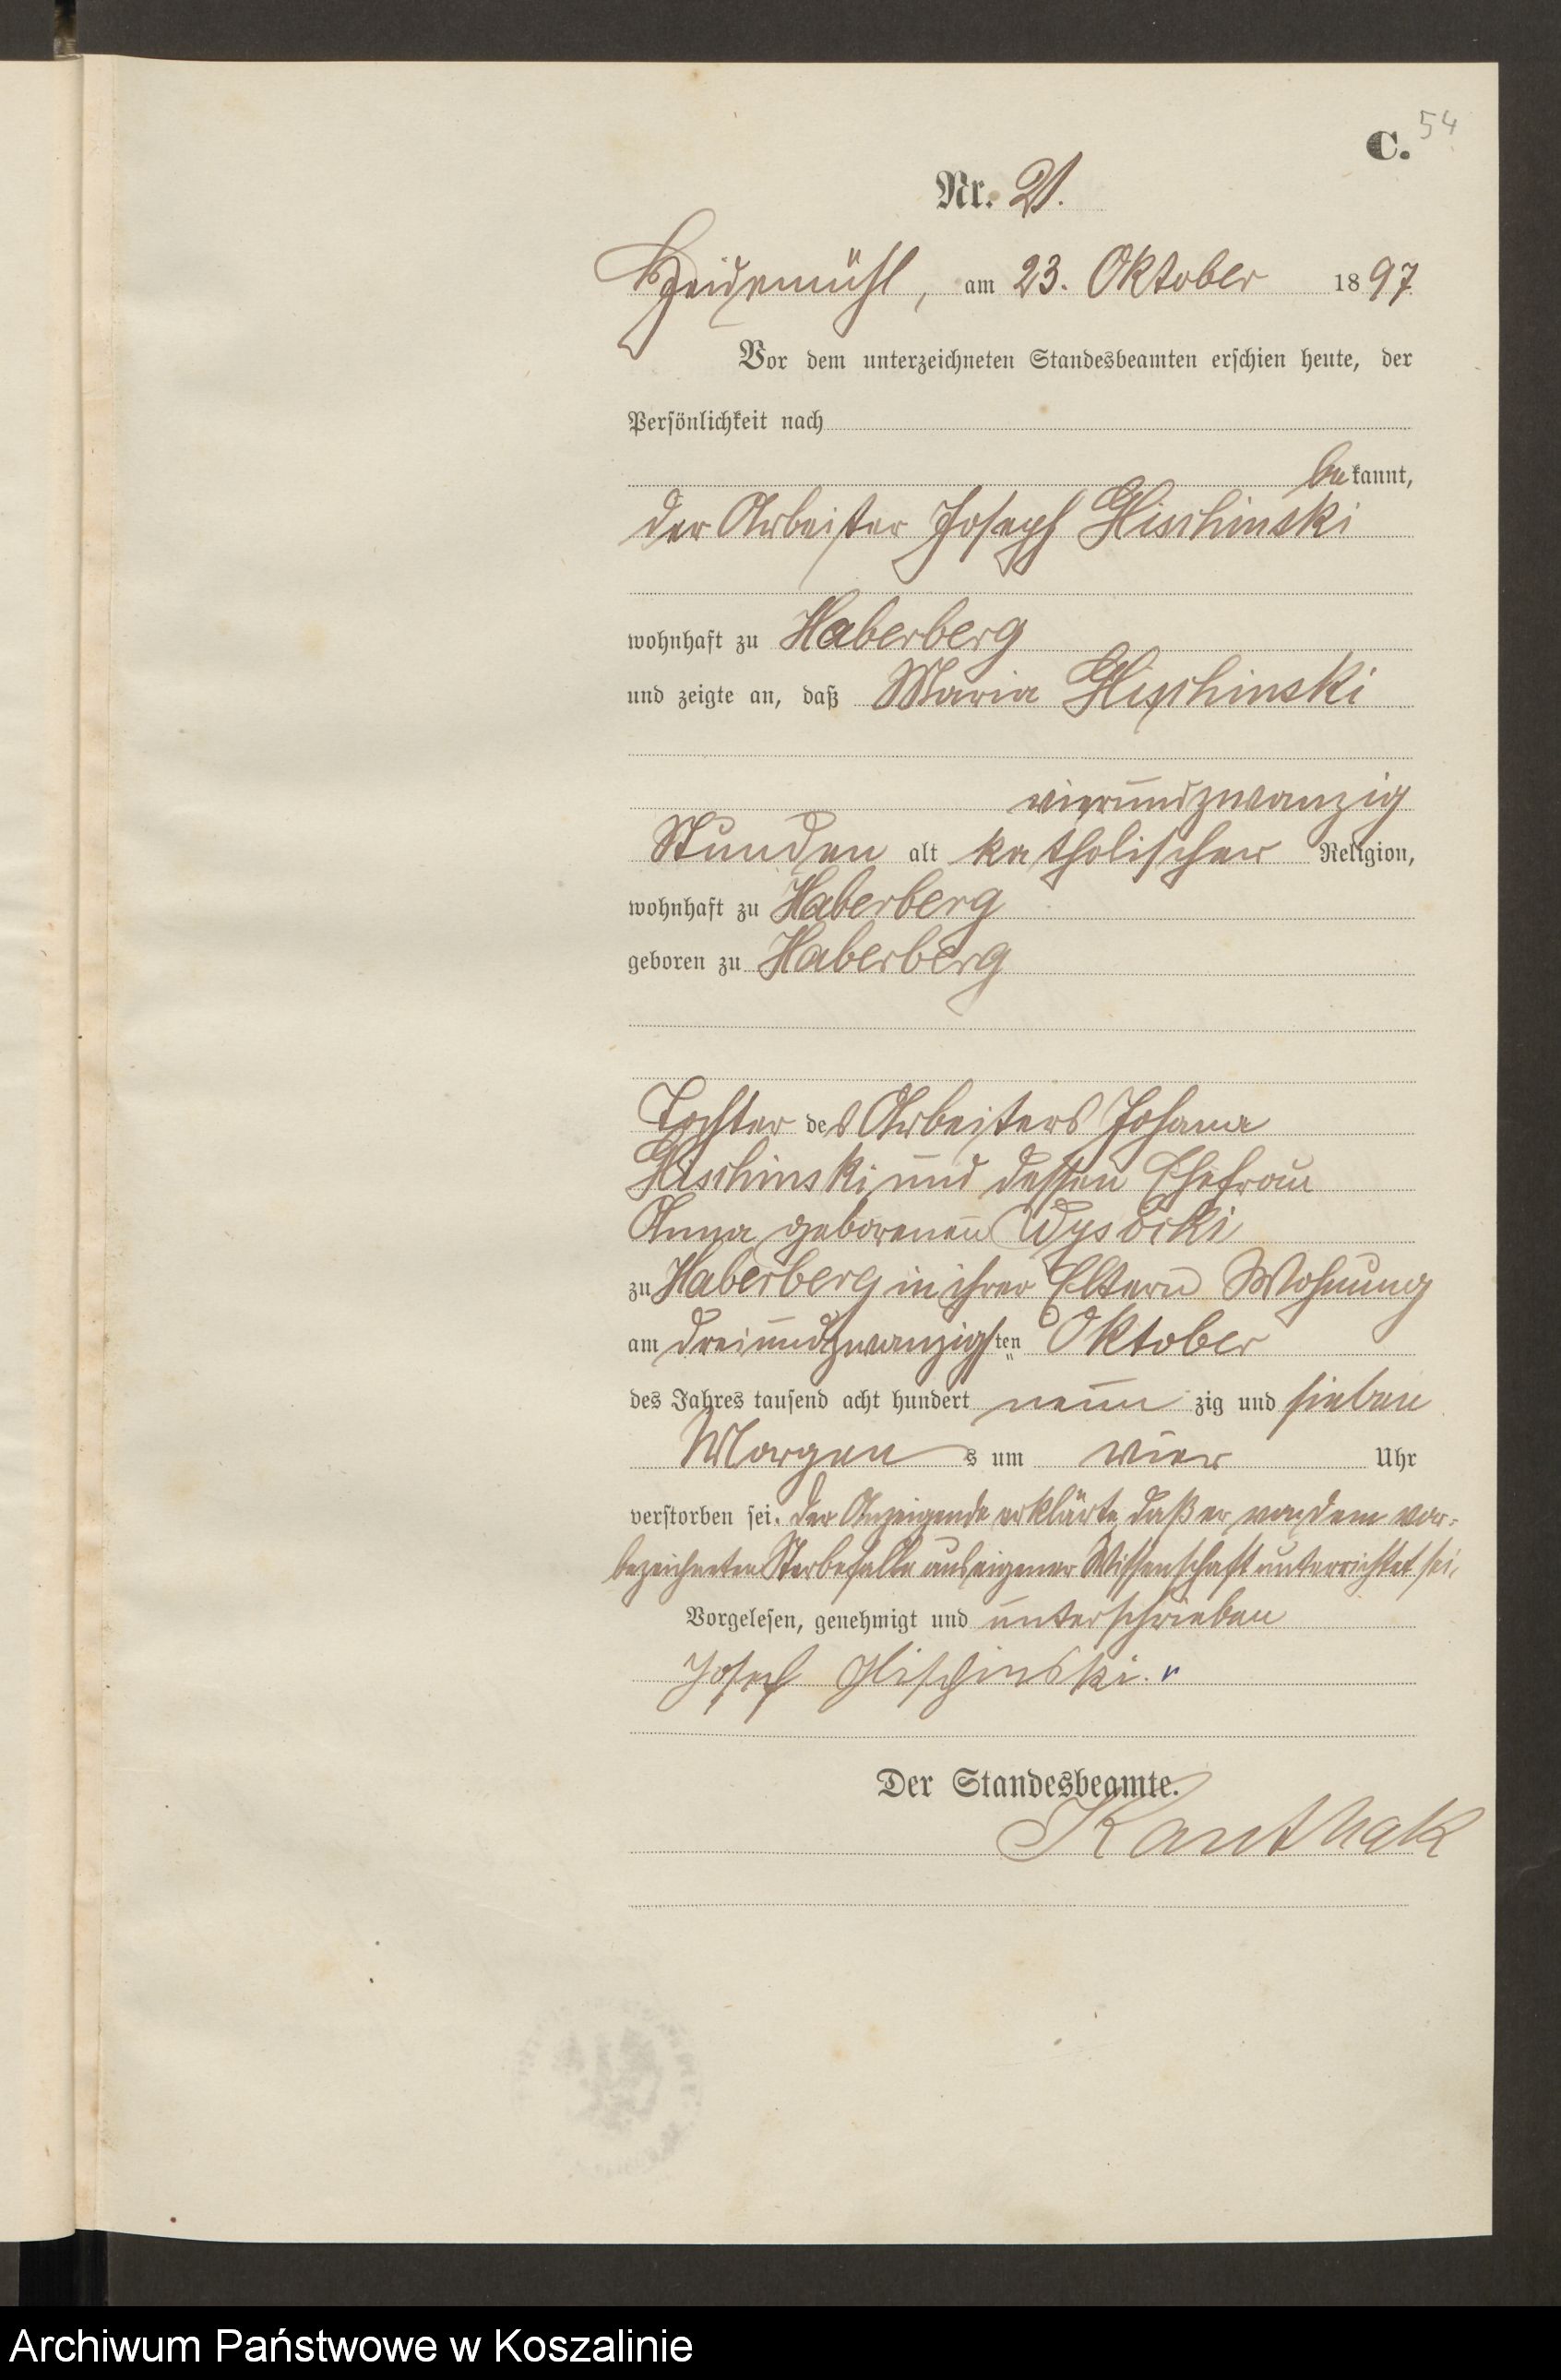 54
C.
Nr. 21.
Heidemühl, am 23. Oktober 1897
Vor dem unterzeichneten Standesbeamten erschien heute, der
Persönlichkeit nach
bekannt,
der Arbeiter Joseph Glischinski
wohnhaft zu Haberberg
und zeigte an, daß Maria Glischinski
vierundzwanzig
Stunden alt katholischer Religion,
wohnhaft zu Haberberg
geboren zu Haberberg
Tochter des Arbeiters Johann
Glischinski und dessen Ehefrau
Anna geborenen Wysocki
zu Haberberg in ihrer Eltern Wohnung
am dreiundzwanzigsten Oktober
des Jahres tausend acht hundert neunzig und sieben
Morgens um vier Uhr
verstorben sei. Der Anzeigende erklärte, daß er von dem vor-
bezeichneten Sterbefalle aus eigener Wissenschaft unterrichtet sei.
Vorgelesen, genehmigt und unterschrieben
Josef Glischinski.
Der Standesbeamte.
Kanthak
Archiwum Państwowe w Koszalinie